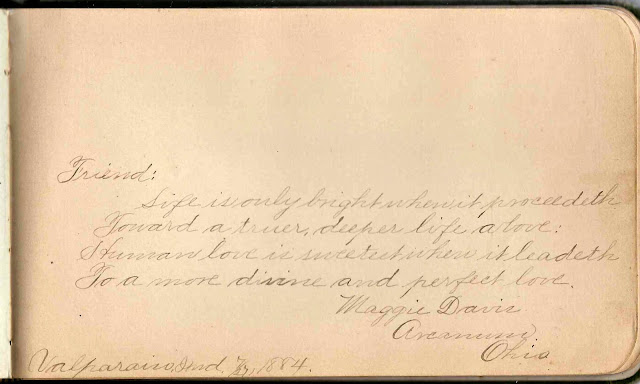 Friend:
Life is only bright when it proceedeth
Toward a truer, deeper life above:
Human love is sweetest when it leadeth
To a more divine and perfect love.
Maggie Davis
Arcanum,
Ohio
Valparaiso, Ind. 1884.